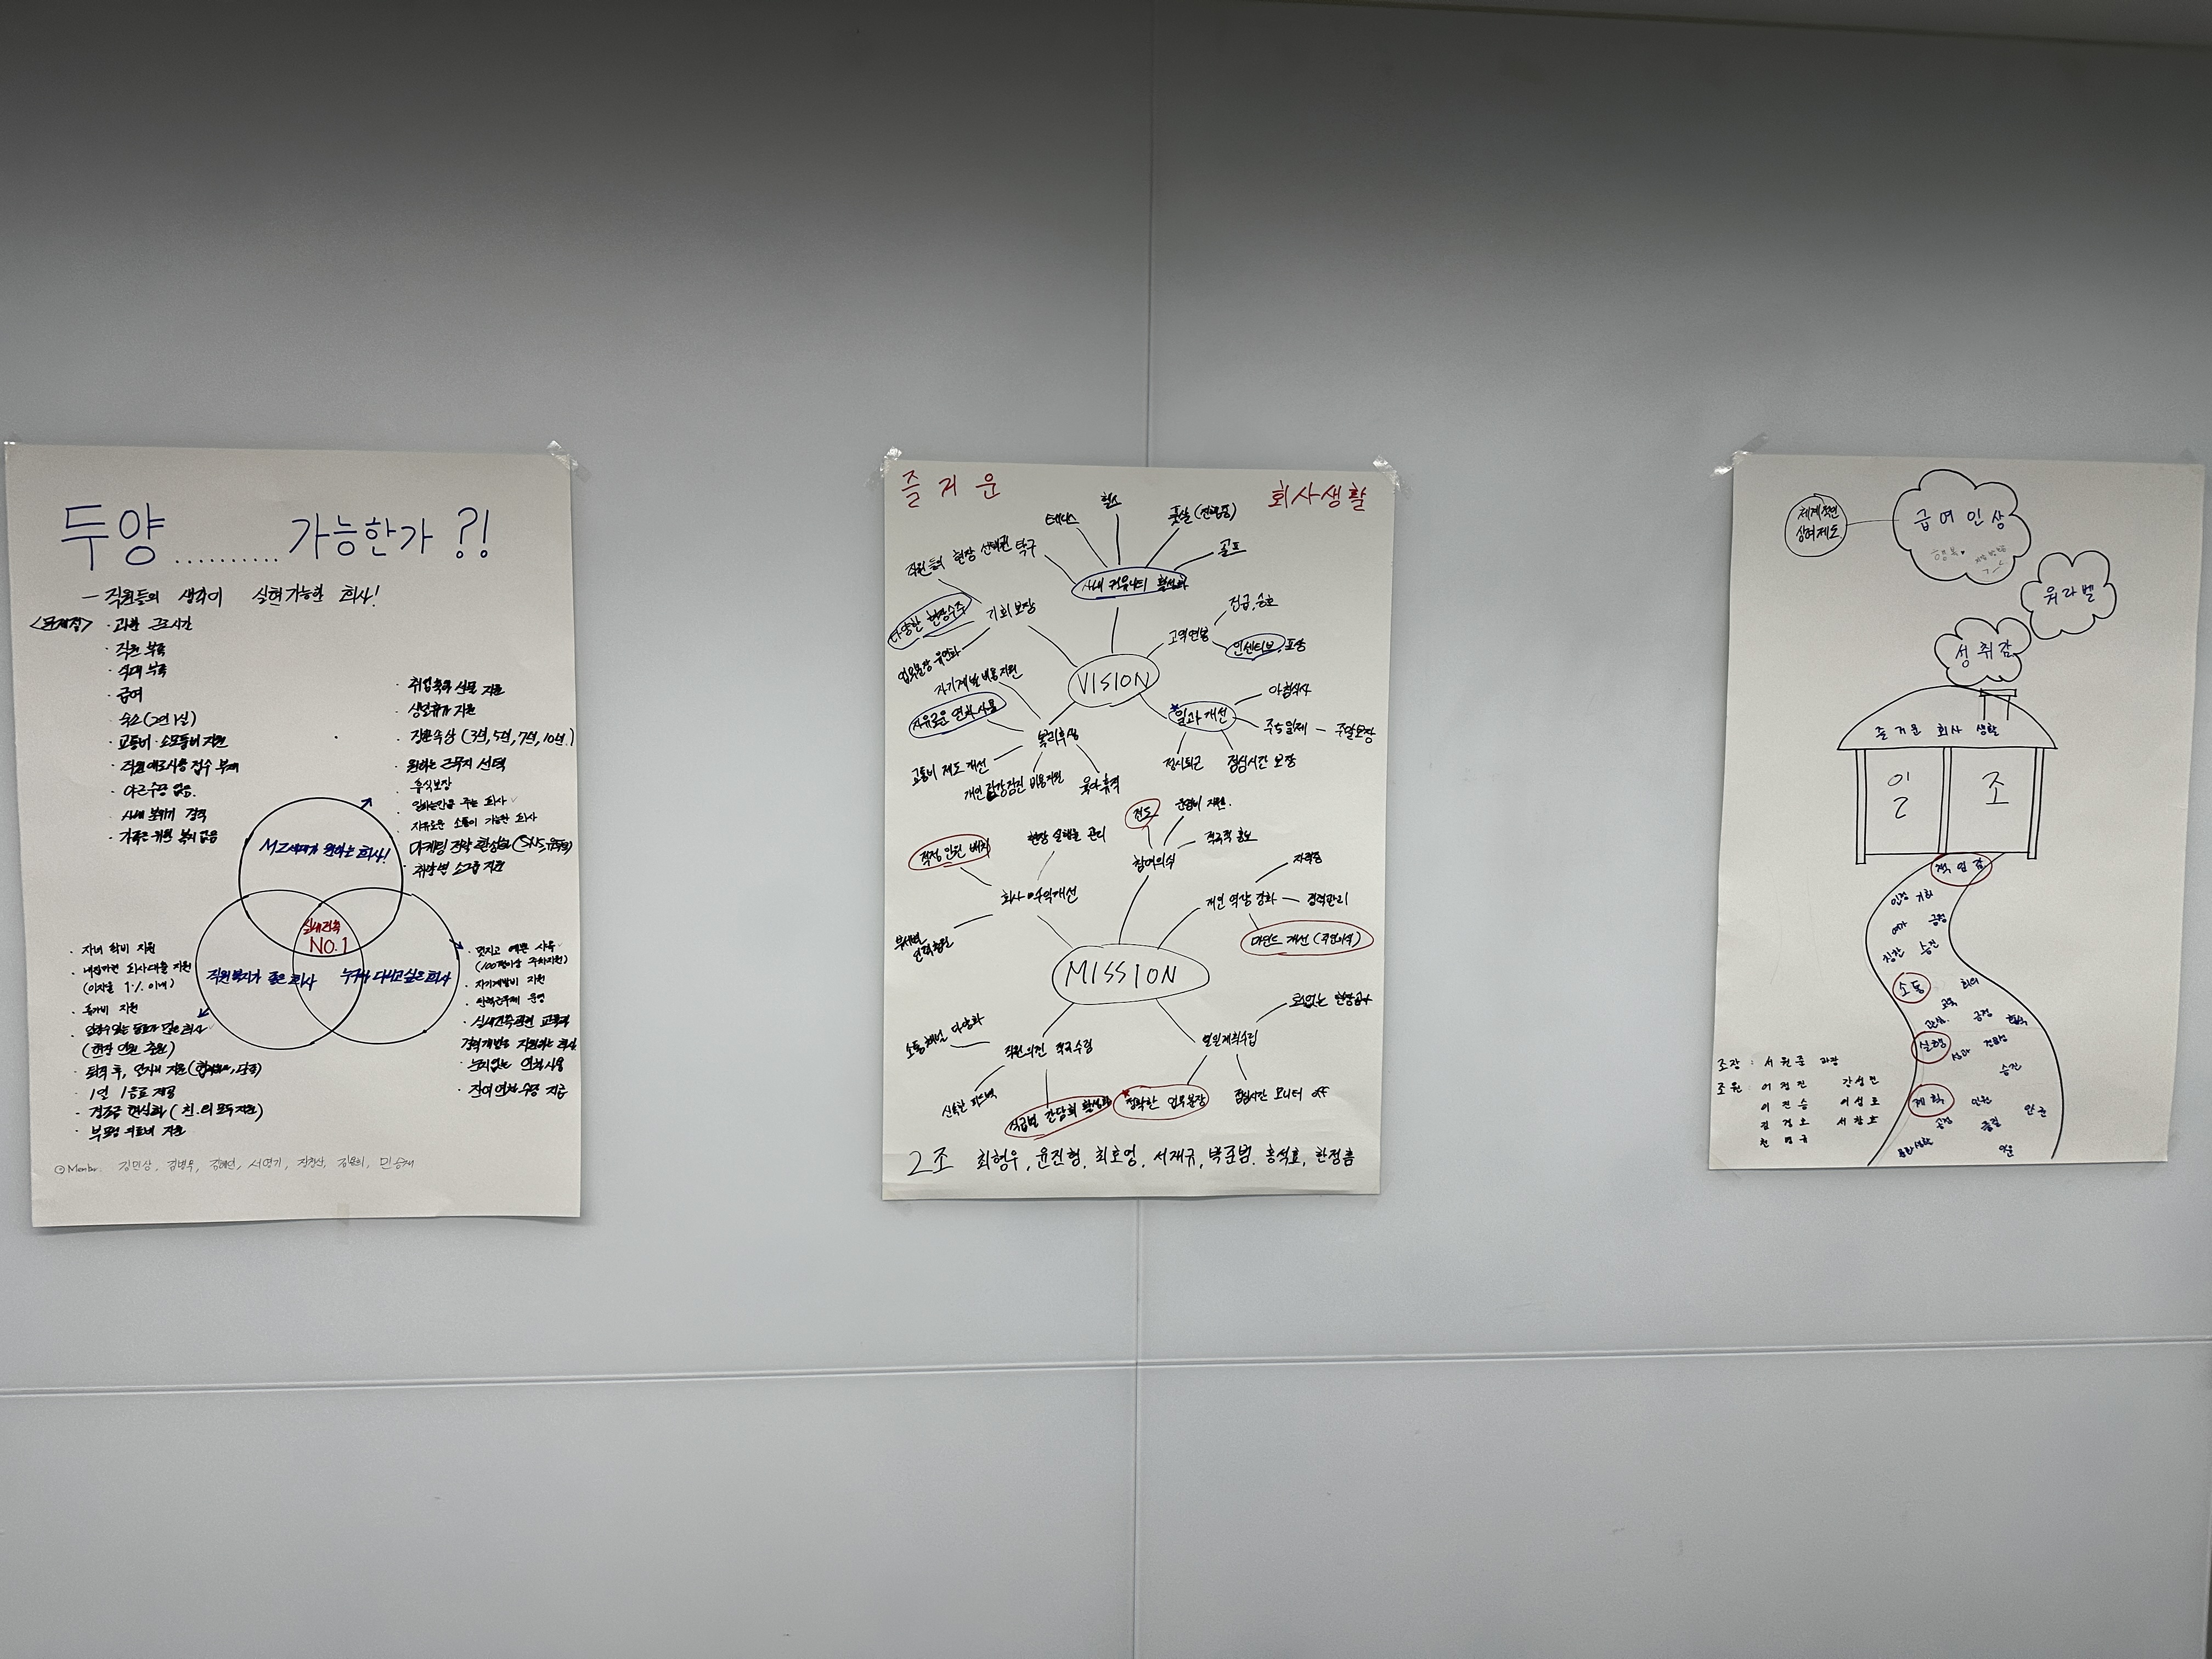 두양 .......... 가능한가 ?!
— 직원들의 생각이 실현가능한 회사!
<문제점>
· 과한 근로시간
· 직원 부족
· 식대 부족
· 급여
· 숙소 (2인 1실)
· 교통비·소모품비 지원
· 직원 애로사항 접수 부재
· 야근수당 없음.
· 사내 분위기 경직
· 가족은 위한 복지 없음
· 취업축하 선물 지원
· 생일휴가 지원
· 장기근속상 (3년, 5년, 7년, 10년)
· 원하는 근무지 선택
· 휴식보장
· 자유로운 소통이 가능한 회사
· 마케팅 전략 활성화 (SNS, 유튜브)
· 취향별 소그룹 지원
MZ세대가 원하는 회사!
실내건축
NO.1
직원복지가 좋은 회사
누구나 다니고 싶은 회사
· 자녀 학비 지원
· 내집마련 회사대출 지원
(이자율 1% 이내)
· 휴가비 지원
(현장 인원 충원)
· 1인 1음료 제공
· 경조금 현실화 (친.외 모두지원)
· 부모님 의료비 지원
· 멋지고 예쁜 사옥
(100평이상 주차지원)
· 자기계발비 지원
· 탄력근무제 운영
· 눈치없는 연차사용
· 잔여연차수당 지급
Member. 김민상, 김병우, 김혜연, 서영기,
즐거운 회사생활
헬스
테니스
풋살 (진행중)
탁구
골프
사내 커뮤니티 활성화
직원들의 현장 선택권
다양한 현장수주
기회보장
업무분장 유연화
진급, 승호
고액연봉
인센티브, 포상
VISION
자기계발 비용지원
자유로운 연차사용
복리후생
교통비 제도 개선
개인 건강검진 비용지원
육아휴직
아침식사
일과 개선
주5일제 — 주말보장
정시퇴근
점심시간 보장
현장 실행률 관리
적정 인원 배치
회사 수익개선
부서별 인력충원
전도
운영비 지원.
적극적 홍보
참여의식
자격증
개인 역량 강화 — 경력관리
마인드 개선 (주인의식)
MISSION
소통채널 다양화
직원의견 적극수렴
신속한 피드백
직급별 간담회 활성화
일일계획수립
정확한 업무분장
점심시간 모니터 off
2조 최형우, 윤진형, 최호영, 서재규, 박준범, 홍석호, 한정흠
체계적인
상여제도
급여인상
행복♥
워라벨
성취감
즐거운 회사 생활
일 조
책임감
인정 기회
칭찬 승진
소통
교육 회의
실행
성과
승진
계획
인원 안전
공정 품질
조장 : 서원준 과장
조원 : 이정진 간성민
이진승 이성호
김경호 서창호
천명규